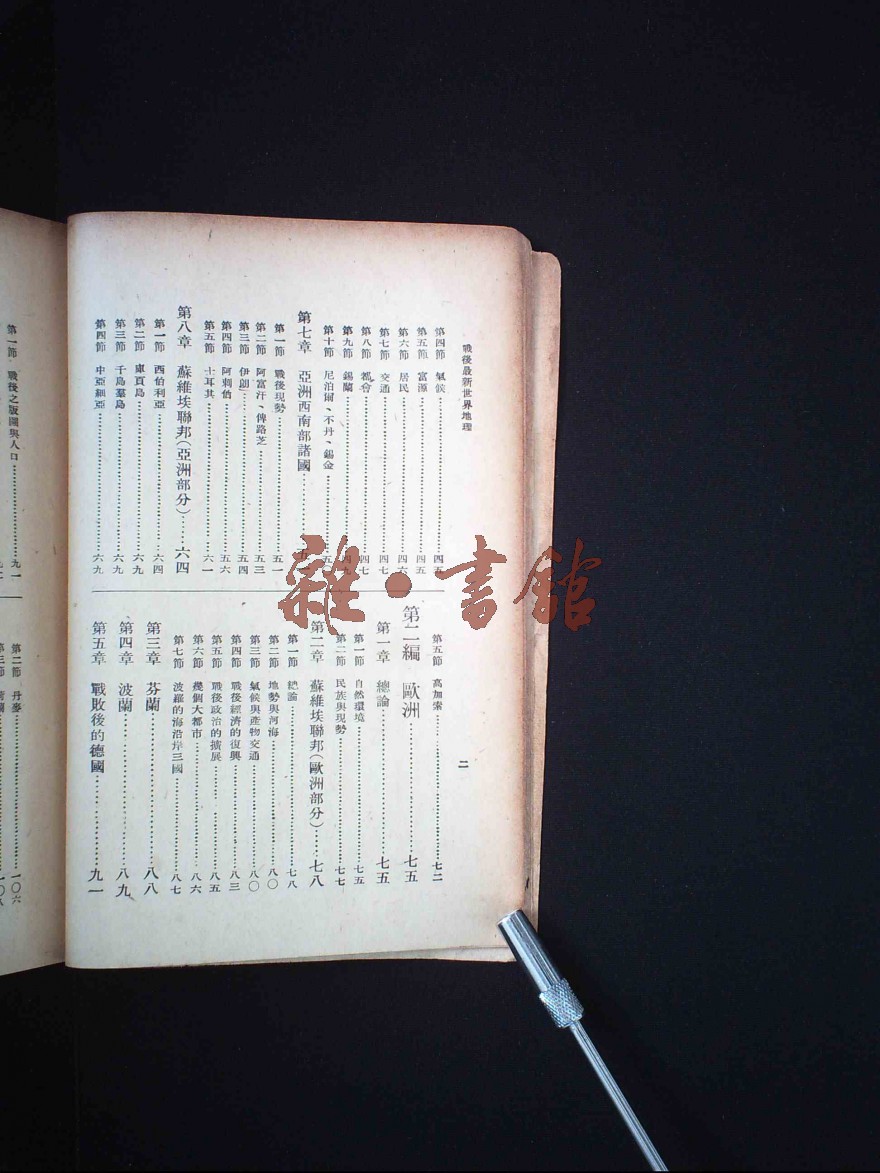 戰後最新世界地理
第四節 氣候……四五
第五節 富源……四五
第六節 居民……四六
第七節 交通……四七
第八節 都會……四七
第九節 錫蘭……四九
第十節 尼泊爾、不丹、錫金……五
第七章 亞洲西南部諸國……五
第一節 戰後現勢……五一
第二節 阿富汗、俾路芝……五三
第三節 伊朗……五四
第四節 阿剌伯……五六
第五節 土耳其……六一
第八章 蘇維埃聯邦(亞洲部分)……六四
第一節 西伯利亞……六四
第二節 庫頁島……六九
第三節 千島羣島……六九
第四節 中亞細亞……六九
第五節 高加索……七二
第二編 歐洲……七五
第一章 總論……七五
第一節 自然環境……七五
第二節 民族與現勢……七七
第二章 蘇維埃聯邦(歐洲部分)……七八
第一節 總論……七八
第二節 地勢與河海……八〇
第三節 氣候與產物交通……八〇
第四節 戰後經濟的復興……八三
第五節 戰後政治的擴展……八五
第六節 幾個大都市……八六
第七節 波羅的海沿岸三國……八七
第三章 芬蘭……八八
第四章 波蘭……八九
第五章 戰敗後的德國……九一
二
第一節 戰後之版圖與人口……九一
第二節 丹麥……一〇六
雜·書館